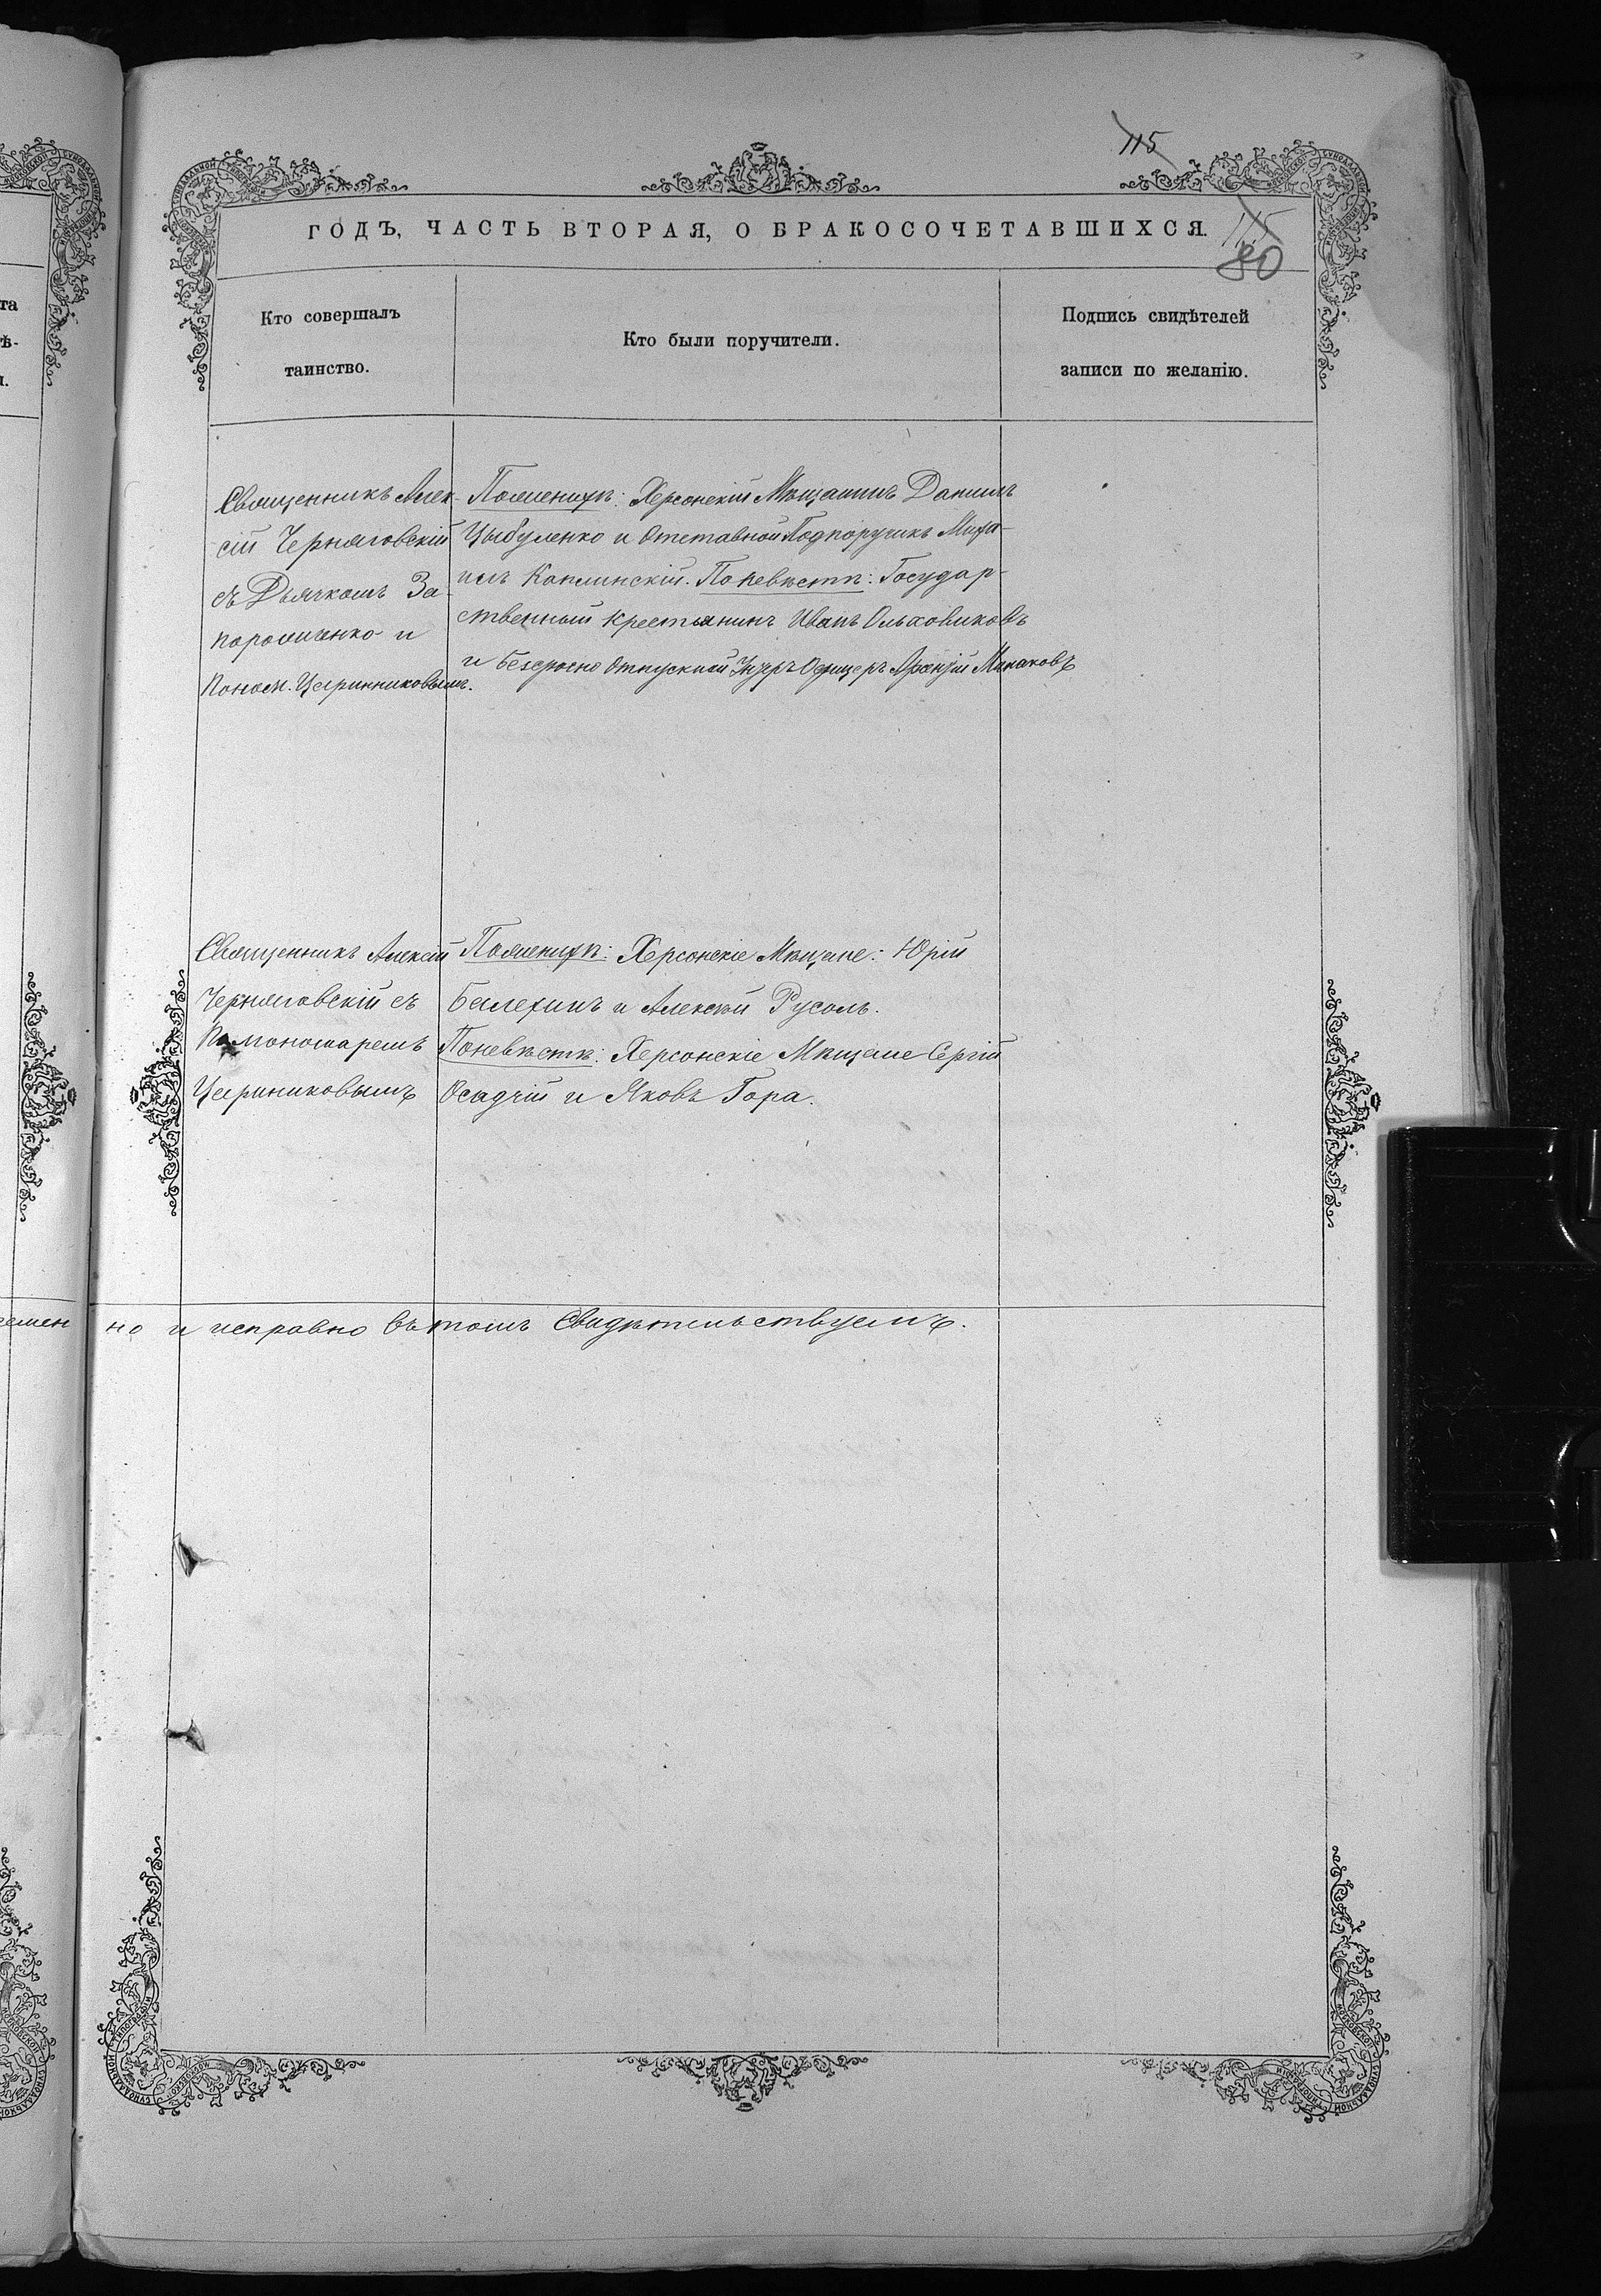 115
ГОДЪ, ЧАСТЬ ВТОРАЯ, О БРАКОСОЧЕТАВШИХСЯ.
115
80
Кто совершалъ
таинство.
Кто были поручители.
Подпись свидѣтелей
записи по желанію.
Священникъ Алек-
сій Черняговскій
съ Дьячкомъ За-
порожченко и
Поном. Цариниковымъ.
Поженихѣ: Херсонскій Мѣщанинъ Данiилъ
Цыбуленко и Отставной Подпоручикъ Миха-
илъ Каплинскій. Поневѣстѣ: Государ-
ственный Крестьянинъ Иванъ Ольховиковъ
и безсрочно отпускной Унтеръ Офицеръ Минаковъ
Священникъ Алексій
Черняговскій съ
Пономаремъ
Цариниковымъ
Поженихѣ: Херсонскіе Мѣщане: Юрій
и Алексѣй Русолъ.
Поневѣстѣ: Херсонскіе Мѣщане Сергій
Осадчій и Яковъ Гора.
но и исправно въ томъ Свидѣтельствуемъ.